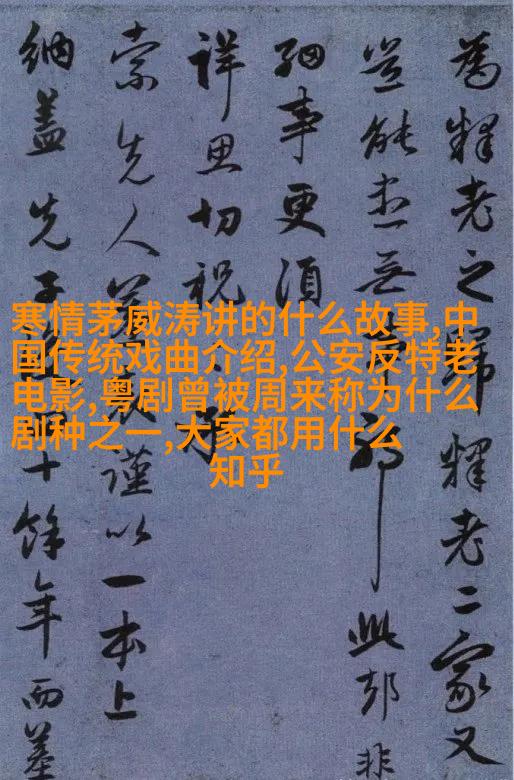 為釋老之歸釋老二家又
豈能無耶此却非
細事更須
詳思切祝
索先人謹以一本上
納蓋先子十餘年而墓
寒情茅威涛讲的什么故事,中
国传统戏曲介绍,公安反特老
电影,粤剧曾被周来称为什么
剧种之一,大家都用什么
知乎